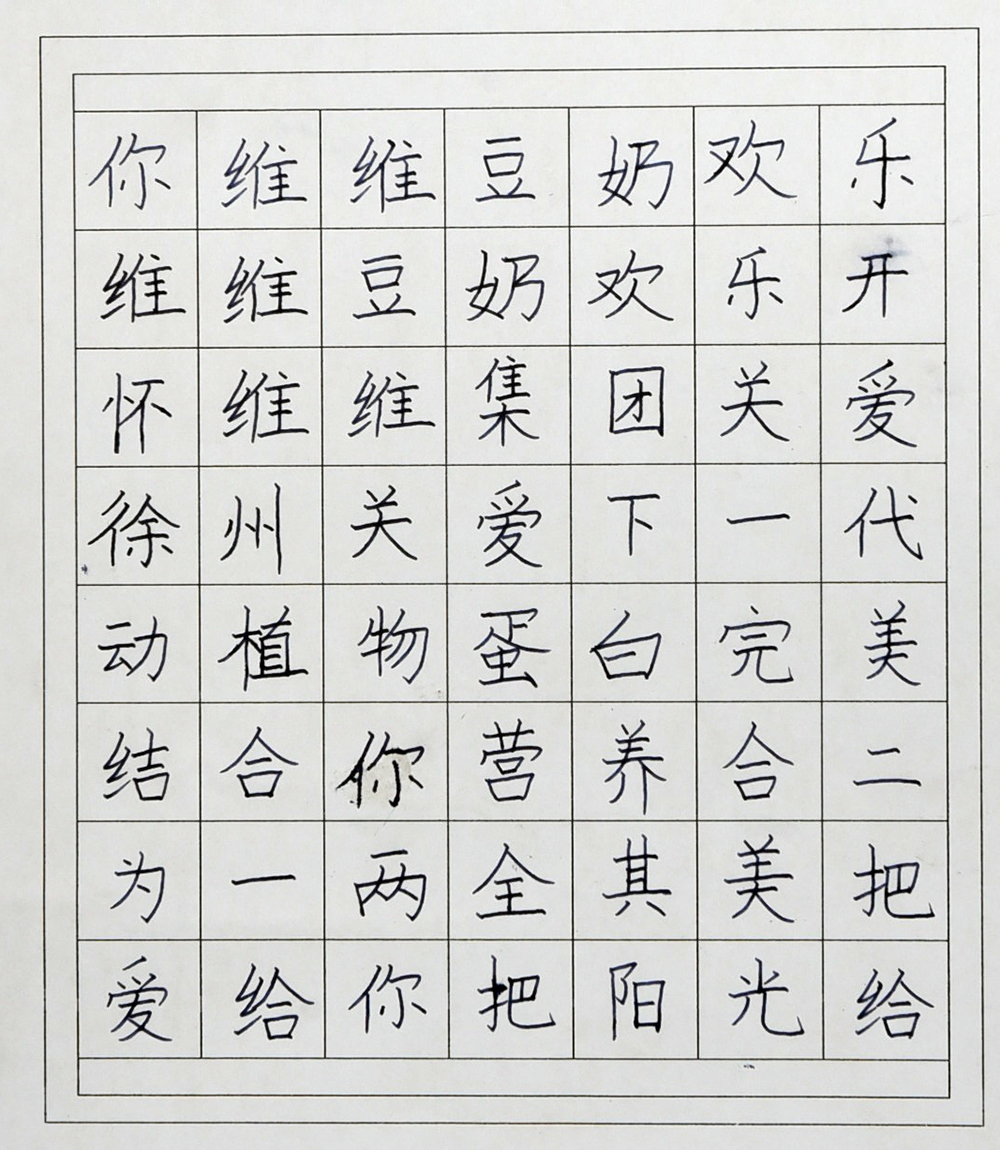 你维维豆奶欢乐
维维豆奶欢乐开
怀维维集团关爱
徐州关爱下一代
动植物蛋白完美
结合你营养合二
为一两全其美把
爱给你把阳光给